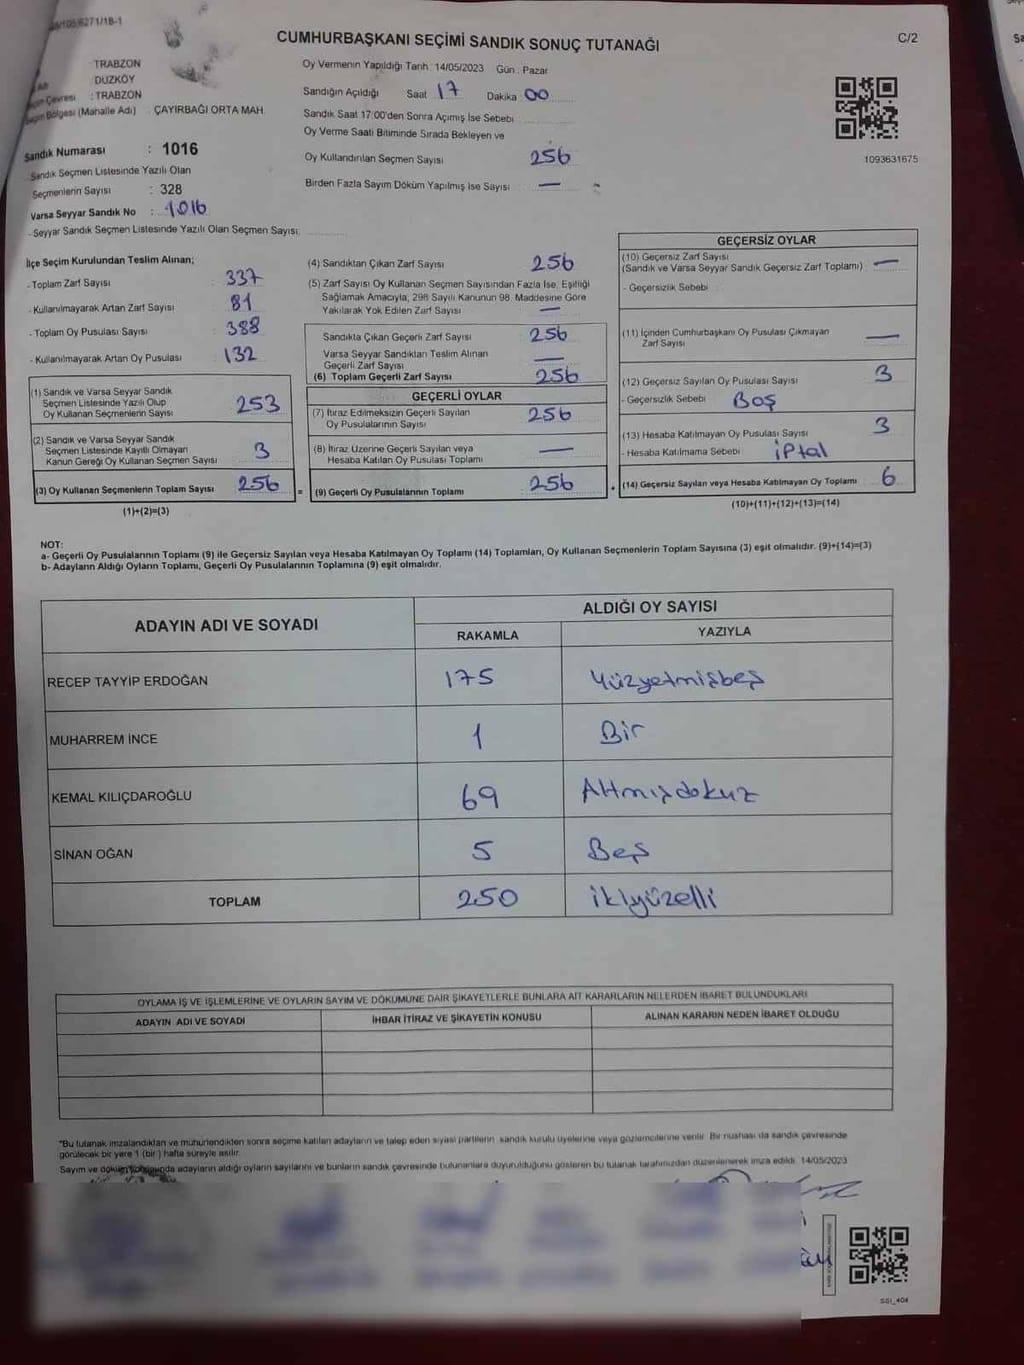 /105/6271/1B-1
C/2
CUMHURBAŞKANI SEÇİMİ SANDIK SONUÇ TUTANAĞI
TRABZON
DÜZKÖY
Çevresi : TRABZON
Bölgesi (Mahalle Adı) : ÇAYIRBAĞI ORTA MAH.
Sandık Numarası : 1016
Sandık Seçmen Listesinde Yazılı Olan
Seçmenlerin Sayısı : 328
Varsa Seyyar Sandık No : 1016
- Seyyar Sandık Seçmen Listesinde Yazılı Olan Seçmen Sayısı:
Oy Vermenin Yapıldığı Tarih: 14/05/2023 Gün : Pazar
Sandığın Açıldığı Saat 17 Dakika 00
Sandık Saat 17:00'den Sonra Açılmış İse Sebebi
Oy Verme Saati Bitiminde Sırada Bekleyen ve
Oy Kullandırılan Seçmen Sayısı 256
Birden Fazla Sayım Döküm Yapılmış İse Sayısı —
1093631675
İlçe Seçim Kurulundan Teslim Alınan;
- Toplam Zarf Sayısı : 337
- Kullanılmayarak Artan Zarf Sayısı : 81
- Toplam Oy Pusulası Sayısı : 388
- Kullanılmayarak Artan Oy Pusulası : 132
(1) Sandık ve Varsa Seyyar Sandık
Seçmen Listesinde Yazılı Olup
Oy Kullanan Seçmenlerin Sayısı 253
(2) Sandık ve Varsa Seyyar Sandık
Seçmen Listesinde Kayıtlı Olmayan
Kanun Gereği Oy Kullanan Seçmen Sayısı 3
(3) Oy Kullanan Seçmenlerin Toplam Sayısı 256
(1)+(2)=(3)
(4) Sandıktan Çıkan Zarf Sayısı 256
(5) Zarf Sayısı Oy Kullanan Seçmen Sayısından Fazla İse, Eşitliği
Sağlamak Amacıyla, 298 Sayılı Kanunun 98. Maddesine Göre
Yakılarak Yok Edilen Zarf Sayısı —
Sandıkta Çıkan Geçerli Zarf Sayısı 256
Varsa Seyyar Sandıktan Teslim Alınan
Geçerli Zarf Sayısı —
(6) Toplam Geçerli Zarf Sayısı 256
GEÇERLİ OYLAR
(7) İtiraz Edilmeksizin Geçerli Sayılan
Oy Pusulalarının Sayısı 256
(8) İtiraz Üzerine Geçerli Sayılan veya
Hesaba Katılan Oy Pusulası Toplamı —
= (9) Geçerli Oy Pusulalarının Toplamı 256
GEÇERSİZ OYLAR
(10) Geçersiz Zarf Sayısı
(Sandık ve Varsa Seyyar Sandık Geçersiz Zarf Toplamı) —
- Geçersizlik Sebebi
(11) İçinden Cumhurbaşkanı Oy Pusulası Çıkmayan
Zarf Sayısı —
(12) Geçersiz Sayılan Oy Pusulası Sayısı 3
- Geçersizlik Sebebi Boş
(13) Hesaba Katılmayan Oy Pusulası Sayısı 3
- Hesaba Katılmama Sebebi iptal
(14) Geçersiz Sayılan veya Hesaba Katılmayan Oy Toplamı 6
(10)+(11)+(12)+(13)=(14)
NOT:
a- Geçerli Oy Pusulalarının Toplamı (9) ile Geçersiz Sayılan veya Hesaba Katılmayan Oy Toplamı (14) Toplamları, Oy Kullanan Seçmenlerin Toplam Sayısına (3) eşit olmalıdır. (9)+(14)=(3)
b- Adayların Aldığı Oyların Toplamı, Geçerli Oy Pusulalarının Toplamına (9) eşit olmalıdır.
ADAYIN ADI VE SOYADI
ALDIĞI OY SAYISI
RAKAMLA YAZIYLA
RECEP TAYYİP ERDOĞAN 175 Yüzyetmişbeş
MUHARREM İNCE 1 Bir
KEMAL KILIÇDAROĞLU 69 Altmışdokuz
SİNAN OĞAN 5 Beş
TOPLAM 250 ikiyüzelli
OYLAMA İŞ VE İŞLEMLERİNE VE OYLARIN SAYIM VE DÖKÜMÜNE DAİR ŞİKAYETLERLE BUNLARA AİT KARARLARIN NELERDEN İBARET BULUNDUKLARI
ADAYIN ADI VE SOYADI İHBAR İTİRAZ VE ŞİKAYETİN KONUSU ALINAN KARARIN NEDEN İBARET OLDUĞU
*Bu tutanak imzalandıktan ve mühürlendikten sonra seçime katılan adayların ve talep eden siyasi partilerin sandık kurulu üyelerine veya gözlemcilerine verilir. Bir nüshası da sandık çevresinde
görülecek bir yere 1 (bir) hafta süreyle asılır.
Sayım ve döküm sonucunda adayların aldığı oyların sayılarını ve bunların sandık çevresinde bulunanlara duyurulduğunu gösteren bu tutanak tarafımızdan düzenlenerek imza edildi. 14/05/2023
SSI_404